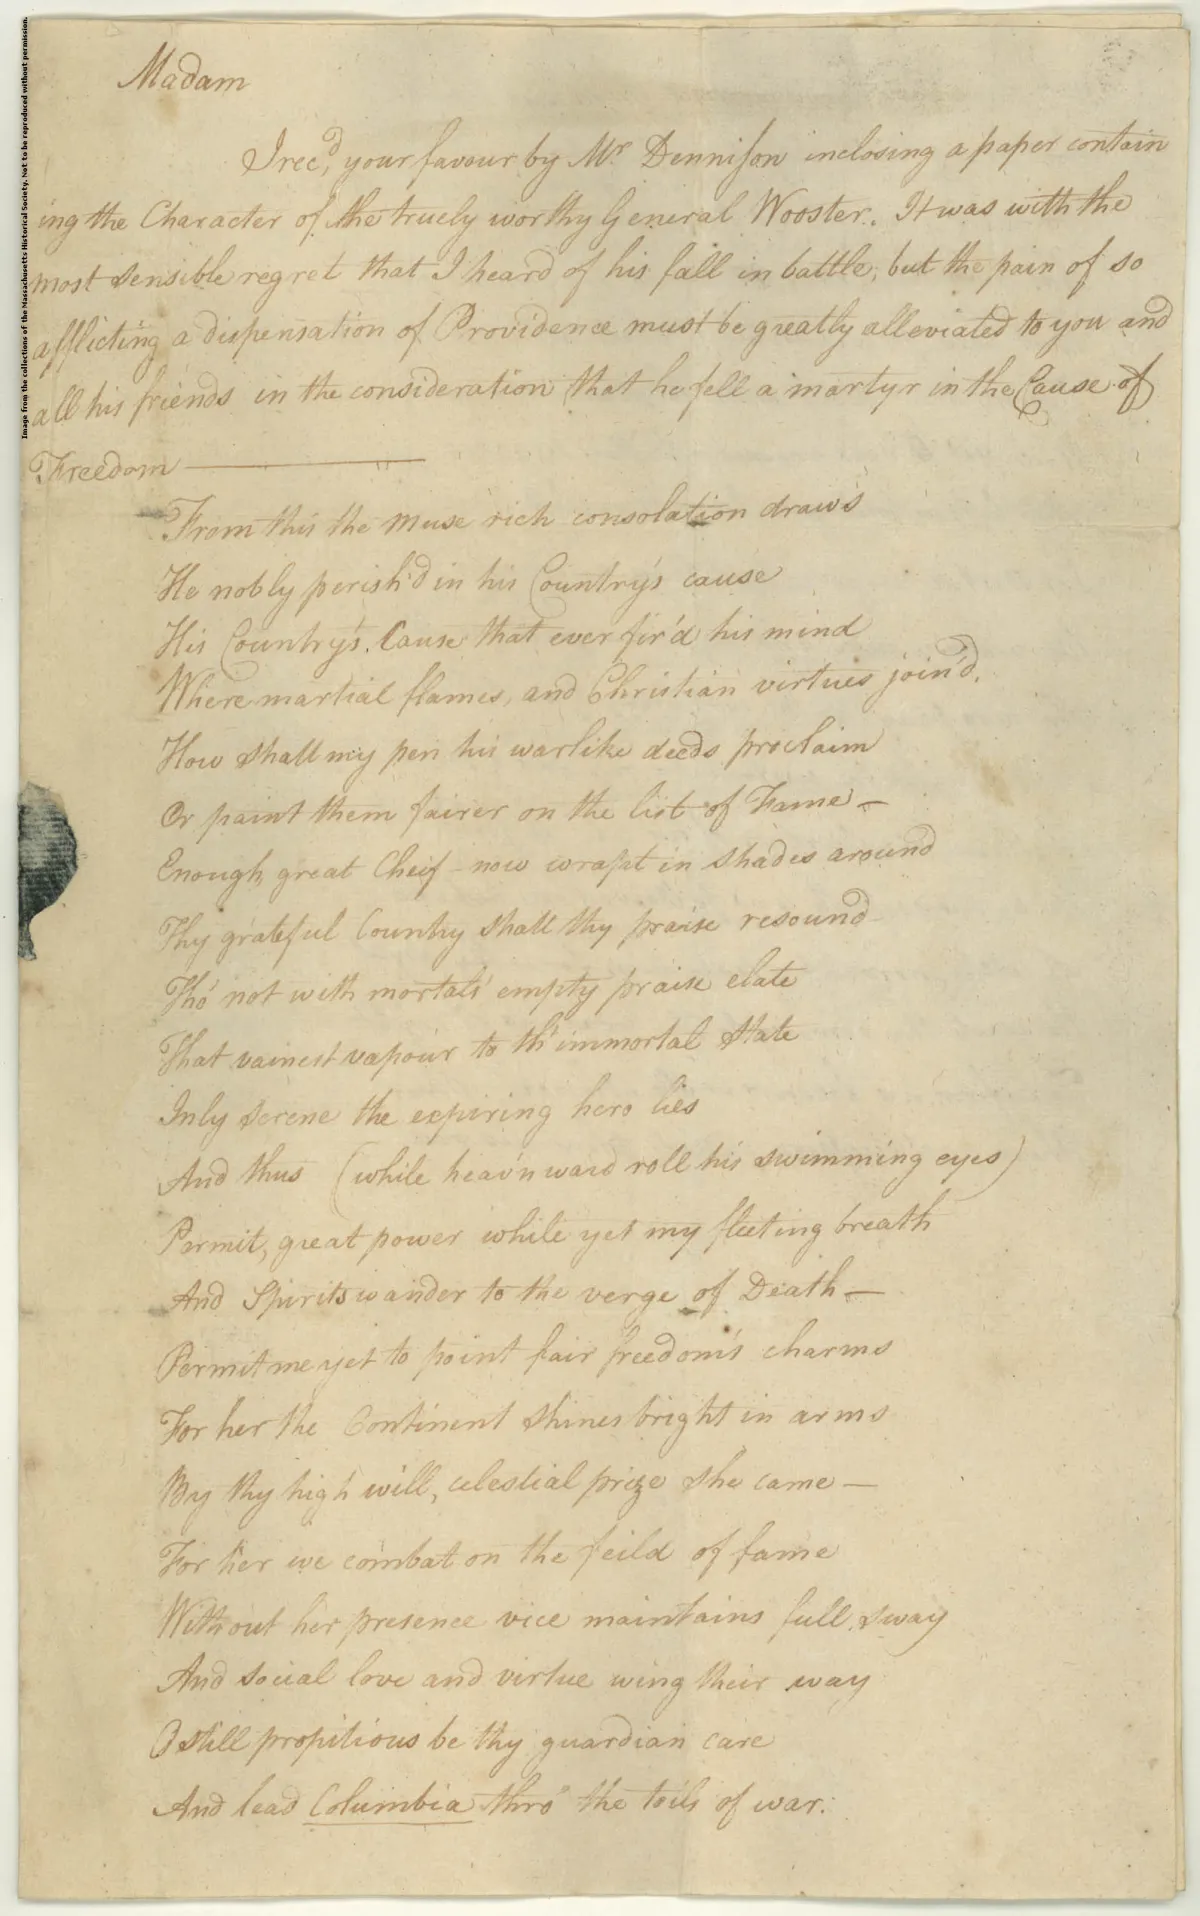 Madam
I rec'd, your favour by Mr Dennison inclosing a paper contain
ing the Character of the truely worthy General Wooster. It was with the
most sensible regret that I heard of his fall in battle, but the pain of so
afflicting a dispensation of Providence must be greatly alleviated to you and
all his friends in the consideration that he fell a martyr in the Cause of
Freedom
From this the muse rich consolation draws
He nobly perish'd in his Country's cause
His Country's Cause that ever fir'd his mind
Where martial flames, and Christian virtues join'd.
How shall my pen his warlike deeds proclaim
Or paint them fairer on the list of Fame—
Enough, great Cheif - now wrapt in shades around
Thy grateful Country shall thy praise resound
Tho' not with mortals' empty praise elate
That vainest vapour to th' immortal State
Inly serene the expiring hero lies
And thus (while heav'nward roll his swimming eyes)
Permit, great power while yet my fleeting breath
And Spirits wander to the verge of Death—
Permit me yet to point fair freedom's charms
For her the Continent shines bright in arms
By thy high will, celestial prize she came—
For her we combat on the feild of fame
Without her presence vice maintains full sway
And social love and virtue wing their way
O still propitious be thy guardian care
And lead Columbia thro' the toils of war.
Image from the collections of the Massachusetts Historical Society. Not to be reproduced without permission.